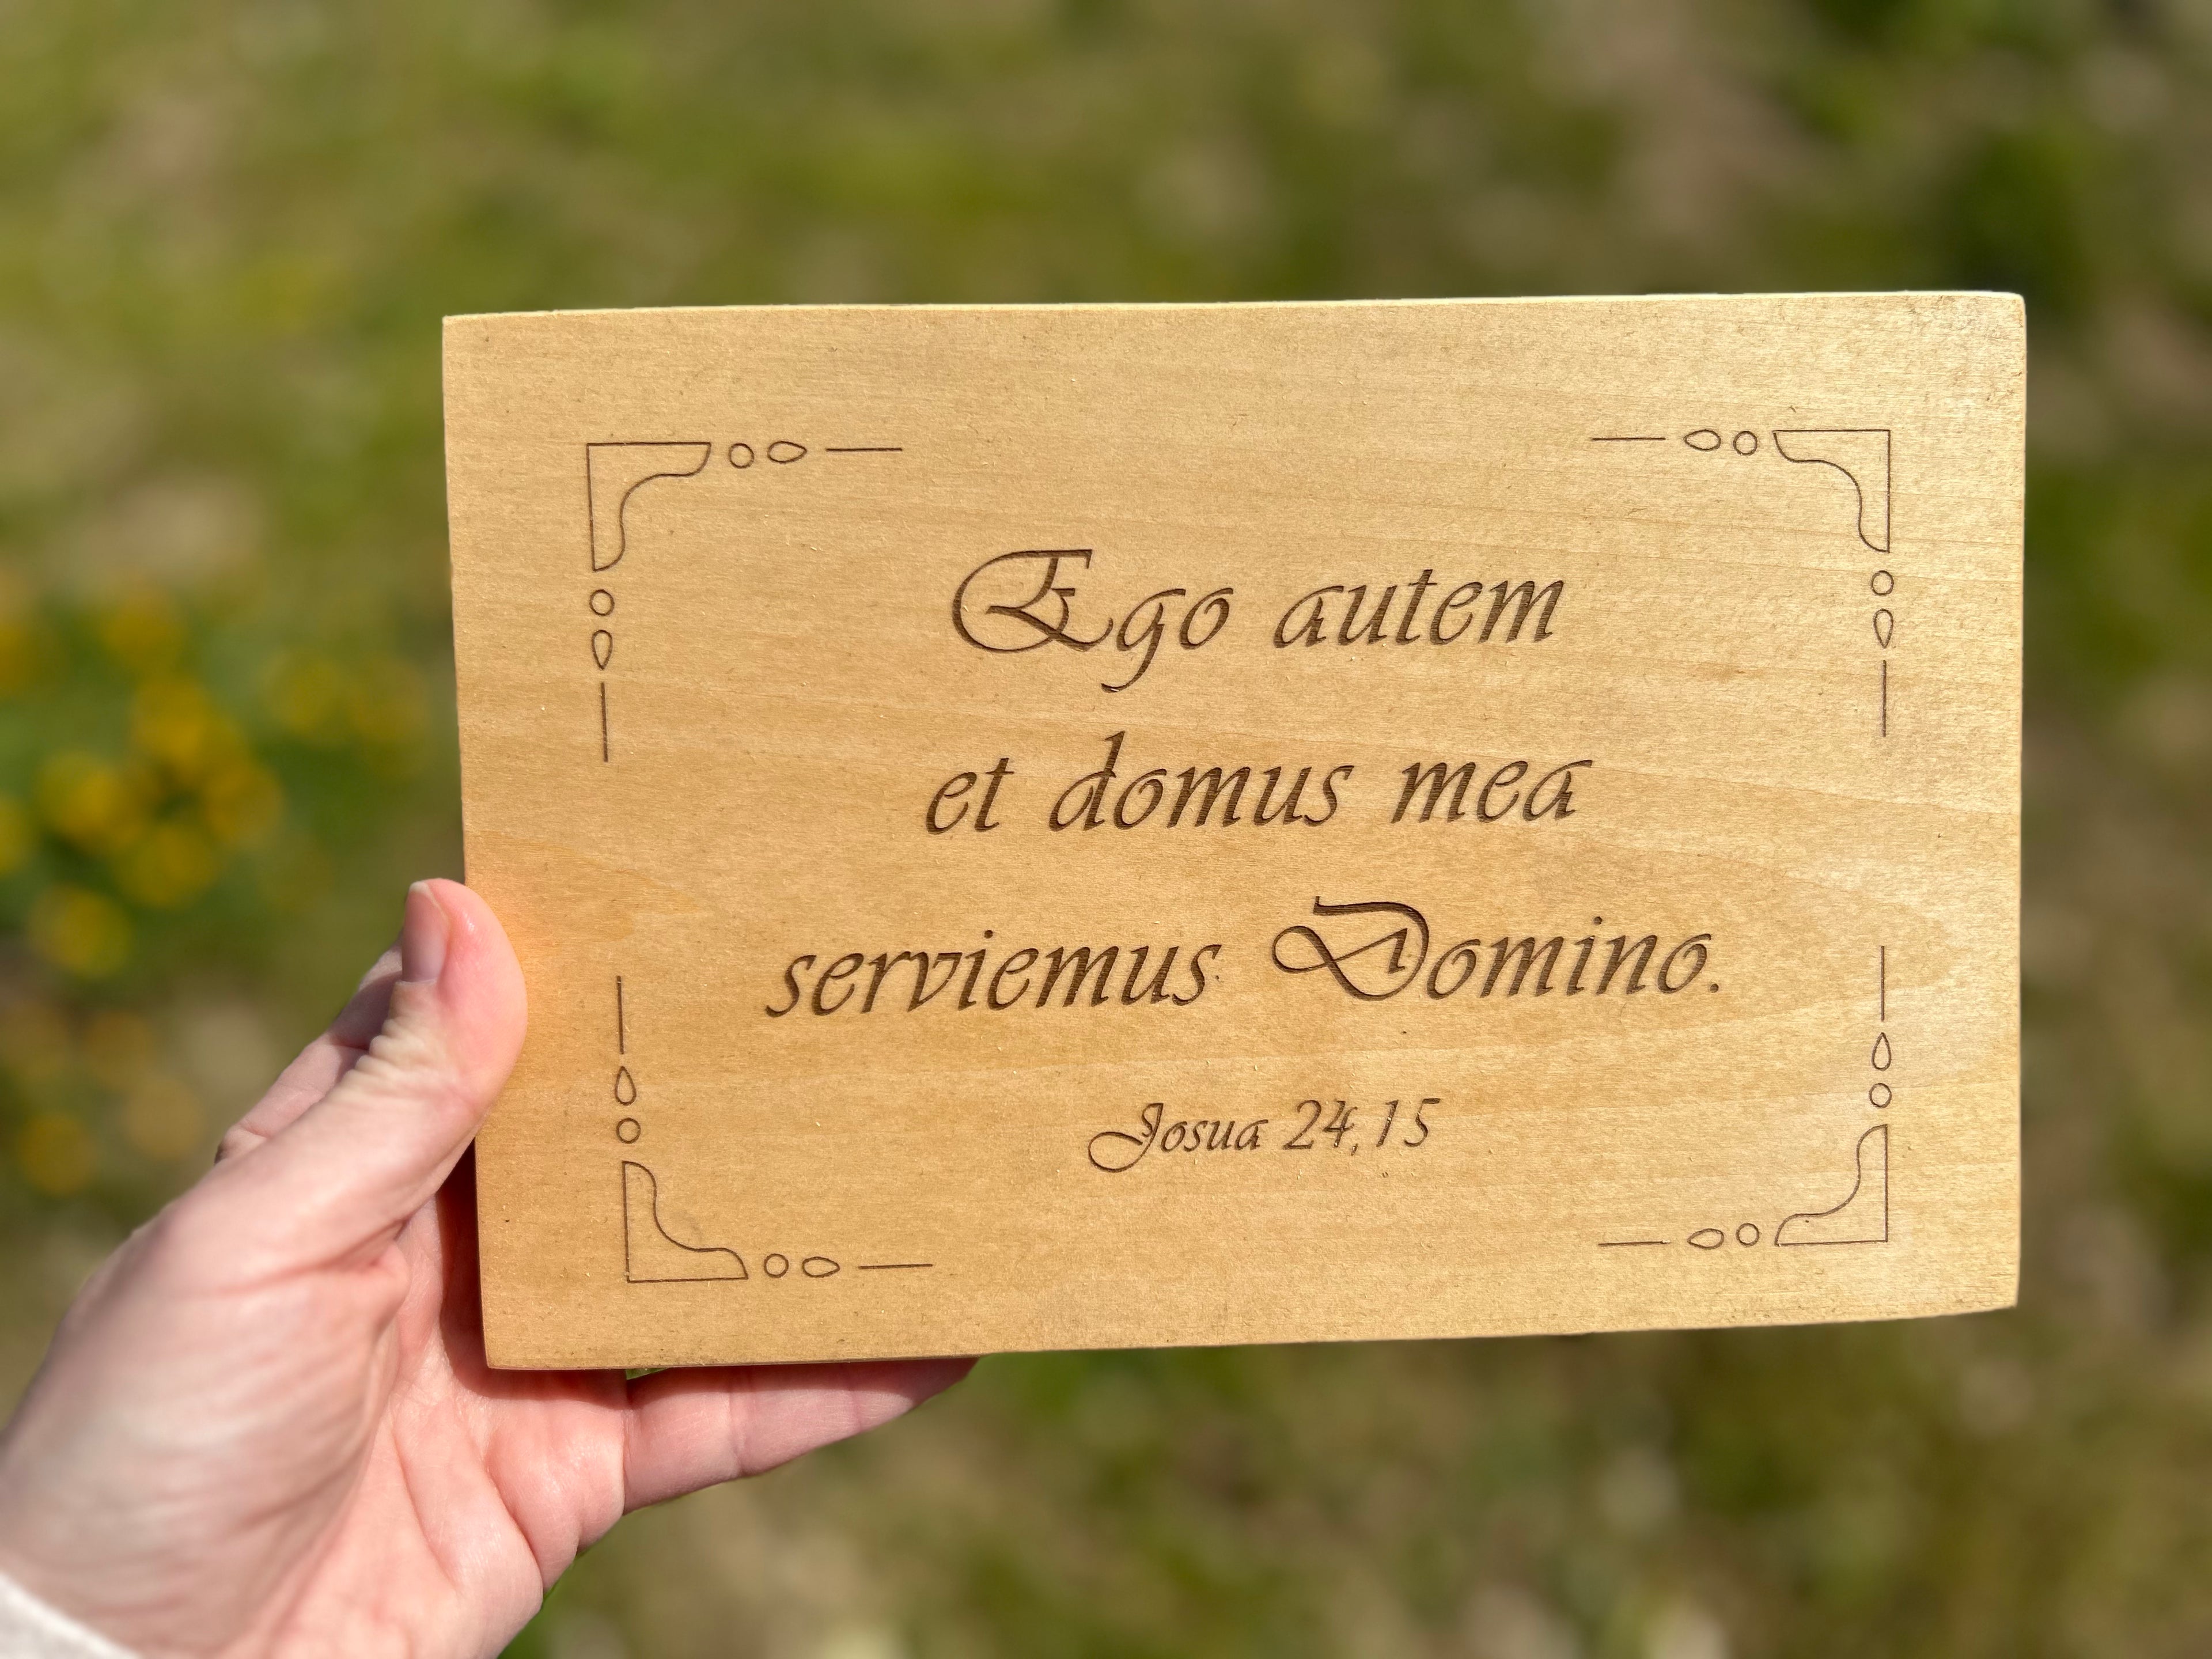 Ego autem
et domus mea
serviemus Domino.
Josua 24,15